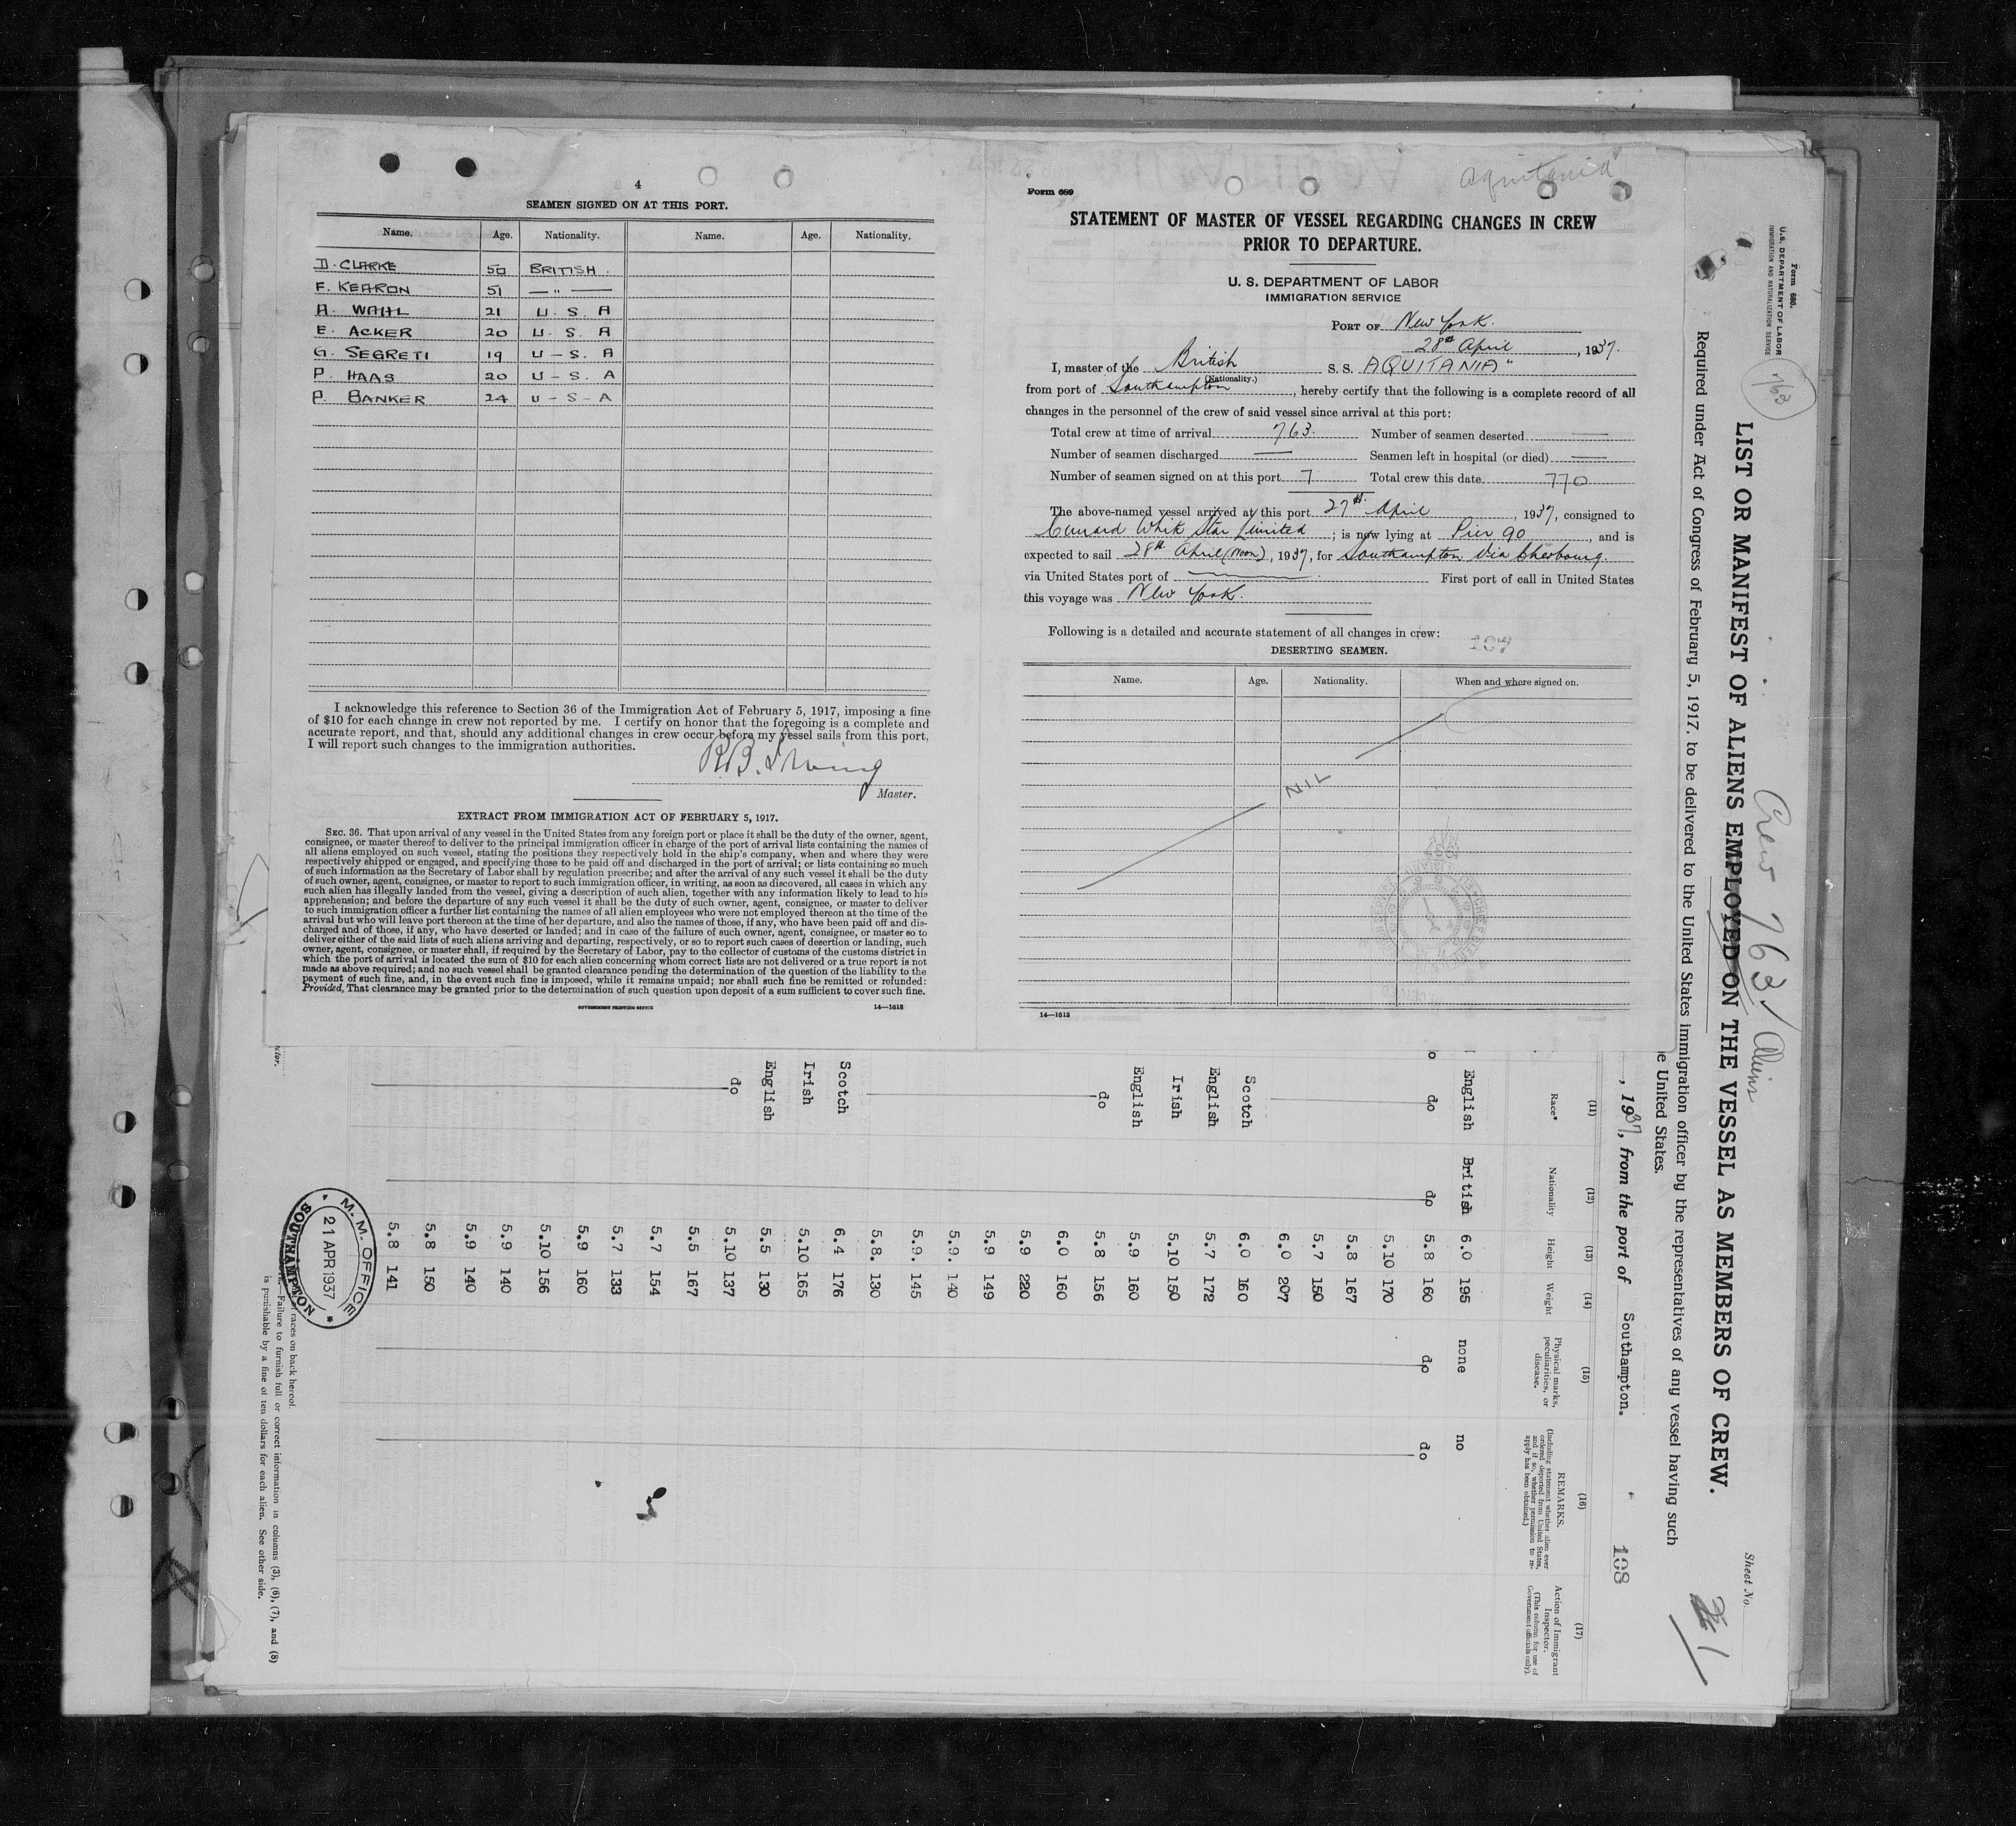 4
SEAMEN SIGNED ON AT THIS PORT.
Name. Age. Nationality. Name. Age. Nationality.
D. CLARKE 50 BRITISH.
F. KEARON 51 — " —
A. WAHL 21 U. S. A
E. ACKER 20 U. S. A
G. SEGRETI 19 U - S. A
P. HAAS 20 U - S. A
P. BANKER 24 U - S - A
I acknowledge this reference to Section 36 of the Immigration Act of February 5, 1917, imposing a fine
of $10 for each change in crew not reported by me. I certify on honor that the foregoing is a complete and
accurate report, and that, should any additional changes in crew occur before my vessel sails from this port,
I will report such changes to the immigration authorities.
R.B. Irving
Master.
EXTRACT FROM IMMIGRATION ACT OF FEBRUARY 5, 1917.
SEC. 36. That upon arrival of any vessel in the United States from any foreign port or place it shall be the duty of the owner, agent,
consignee, or master thereof to deliver to the principal immigration officer in charge of the port of arrival lists containing the names of
all aliens employed on such vessel, stating the positions they respectively hold in the ship's company, when and where they were
respectively shipped or engaged, and specifying those to be paid off and discharged in the port of arrival; or lists containing so much
of such information as the Secretary of Labor shall by regulation prescribe; and after the arrival of any such vessel it shall be the duty
of such owner, agent, consignee, or master to report to such immigration officer, in writing, as soon as discovered, all cases in which any
such alien has illegally landed from the vessel, giving a description of such alien, together with any information likely to lead to his
apprehension; and before the departure of any such vessel it shall be the duty of such owner, agent, consignee, or master to deliver
to such immigration officer a further list containing the names of all alien employees who were not employed thereon at the time of the
arrival but who will leave port thereon at the time of her departure, and also the names of those, if any, who have been paid off and dis-
charged and of those, if any, who have deserted or landed; and in case of the failure of such owner, agent, consignee, or master so to
deliver either of the said lists of such aliens arriving and departing, respectively, or so to report such cases of desertion or landing, such
owner, agent, consignee, or master shall, if required by the Secretary of Labor, pay to the collector of customs of the customs district in
which the port of arrival is located the sum of $10 for each alien concerning whom correct lists are not delivered or a true report is not
made as above required; and no such vessel shall be granted clearance pending the determination of the question of the liability to the
payment of such fine, and, in the event such fine is imposed, while it remains unpaid; nor shall such fine be remitted or refunded:
Provided, That clearance may be granted prior to the determination of such question upon deposit of a sum sufficient to cover such fine.
GOVERNMENT PRINTING OFFICE 14—1613
Aquitania
Form 689
STATEMENT OF MASTER OF VESSEL REGARDING CHANGES IN CREW
PRIOR TO DEPARTURE.
U. S. DEPARTMENT OF LABOR
IMMIGRATION SERVICE
PORT OF New York.
28th April, 1937.
I, master of the British S. S. AQUITANIA"
(Nationality.)
from port of Southampton, hereby certify that the following is a complete record of all
changes in the personnel of the crew of said vessel since arrival at this port:
Total crew at time of arrival 763. Number of seamen deserted —
Number of seamen discharged — Seamen left in hospital (or died) —
Number of seamen signed on at this port 7 Total crew this date 770
The above-named vessel arrived at this port 27th April, 1937, consigned to
Cunard White Star Limited; is now lying at Pier 90, and is
expected to sail 28th April (Noon), 1937, for Southampton via Cherbourg.
via United States port of — First port of call in United States
this voyage was New York.
Following is a detailed and accurate statement of all changes in crew:
107
DESERTING SEAMEN.
Name. Age. Nationality. When and where signed on.
NIL
14—1613
Form 680.
U.S. DEPARTMENT OF LABOR
IMMIGRATION AND NATURALIZATION SERVICE
763
Crew 763 / Aliens
LIST OR MANIFEST OF ALIENS EMPLOYED ON THE VESSEL AS MEMBERS OF CREW.
Sheet No.
1
Required under Act of Congress of February 5, 1917, to be delivered to the United States immigration officer by the representatives of any vessel having such
e United States.
, 1937, from the port of Southampton.
108
(11) (12) (13) (14) (15) (16) (17)
Race* Nationality Height Weight Physical marks, peculiarities, or disease. REMARKS. (Including statement whether alien ever ordered deported from United States, and if so, whether permission to re-apply has been obtained.) Action of Immigrant Inspector. (This column for use of Government officials only).
English British 6.0 195 none no
do do 5.8 160 do do
5.10 170
5.8 167
5.7 150
6.0 207
Scotch 6.0 160
English 5.7 172
Irish 5.10 150
English 5.9 160
do 5.8 156
6.0 160
5.9 220
5.9 149
5.9. 140
5.9. 145
5.8. 130
Scotch 6.4 176
Irish 5.10 165
English 5.5 130
do 5.10 137
5.5 167
5.7 154
5.7 133
5.9 160
5.10 156
5.9 140
5.9 140
5.8 150
5.8 141
M. M. OFFICE
21 APR 1937
SOUTHAMPTON
races on back hereof.
—Failure to furnish full or correct information in columns (3), (6), (7), and (8)
is punishable by a fine of ten dollars for each alien. See other side.